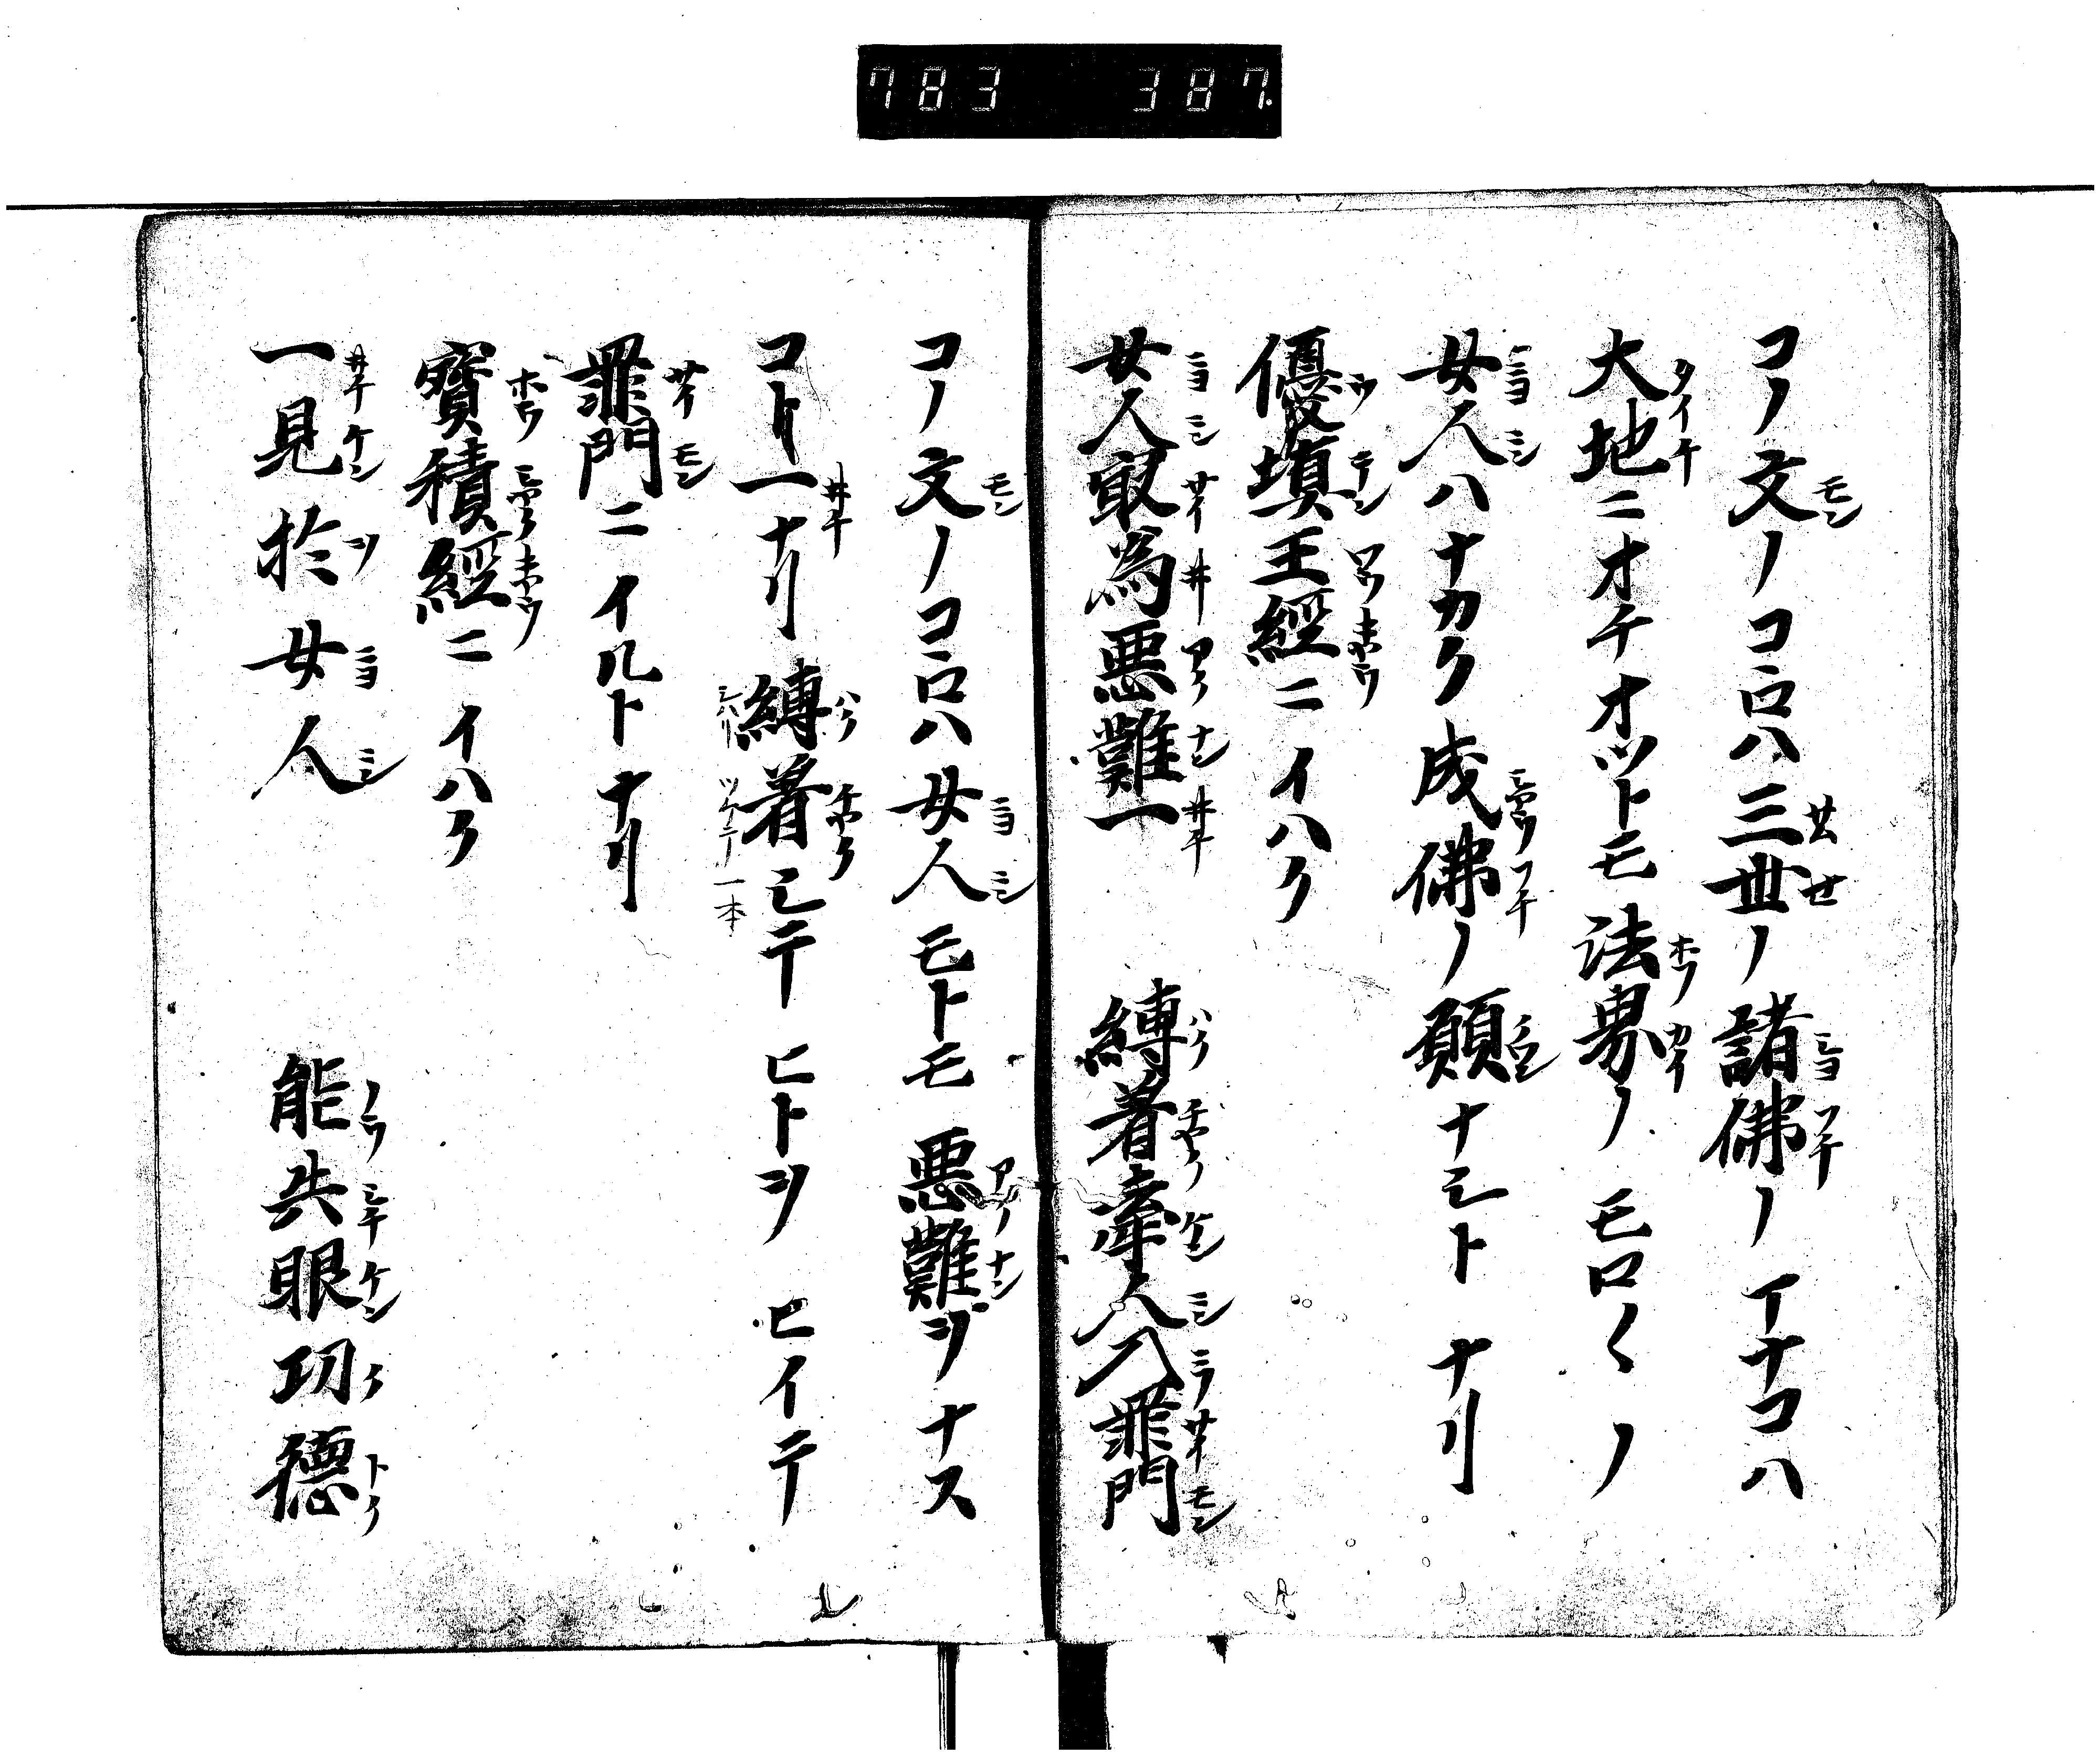 783 387
コノ文ノコヽロハ三世ノ諸佛ノイナコハ
大地ニオチオツトモ法界ノモロ〱ノ
女人ハナカク成佛ノ願ナシトナリ
優填王經ニイハク
女人冣為惡難一 縛著牽人入罪門
コノ文ノコヽロハ女人モトモ惡難ヲナス
コト一ナリ縛著シテヒトヲヒイテ
罪門ニイルトナリ
寶積經ニイハク
一見於女人 能失眼功德